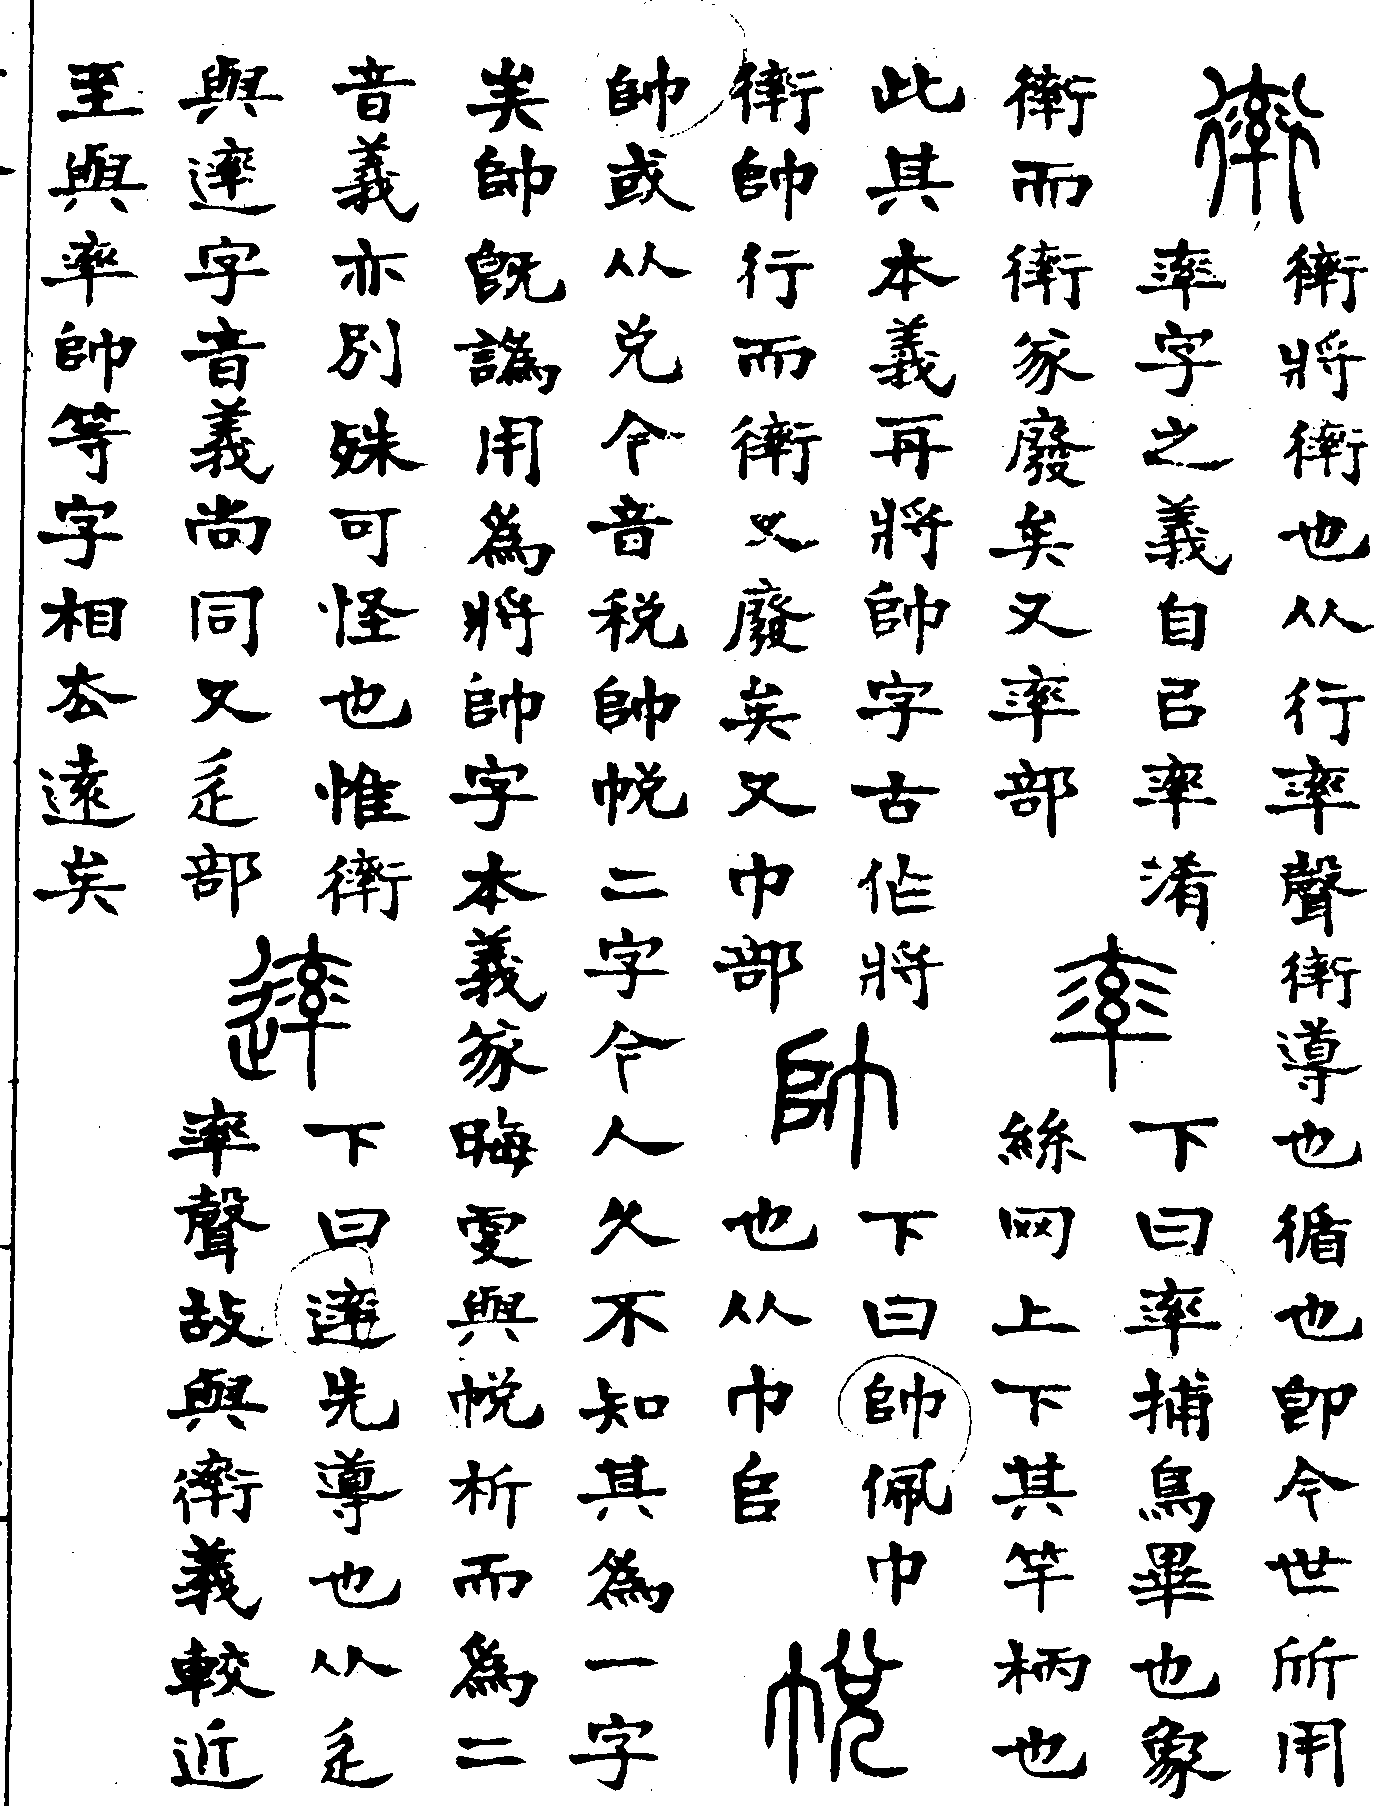 𧗿
𧗿將𧗿也从行率聲𧗿導也循也卽今世所用
率字之義自㠯率淆
𧗿而𧗿篆廢矣又率部
率
下曰率捕鳥畢也象
絲网上下其竿柄也
此其本義再將帥字古作將
𧗿帥行而𧗿又廢矣又巾部
帥
下曰帥佩巾
也从巾𠂤
帨
帥或从兌今音税帥帨二字今人久不知其爲一字
矣帥旣譌用爲將帥字本義篆晦與帨析而爲二
音義亦別殊可怪也惟𧗿
與䢦字音義尚同又辵部
䢦
下曰䢦先導也从辵
率聲故與𧗿義較近
至與率帥等字相去遠矣